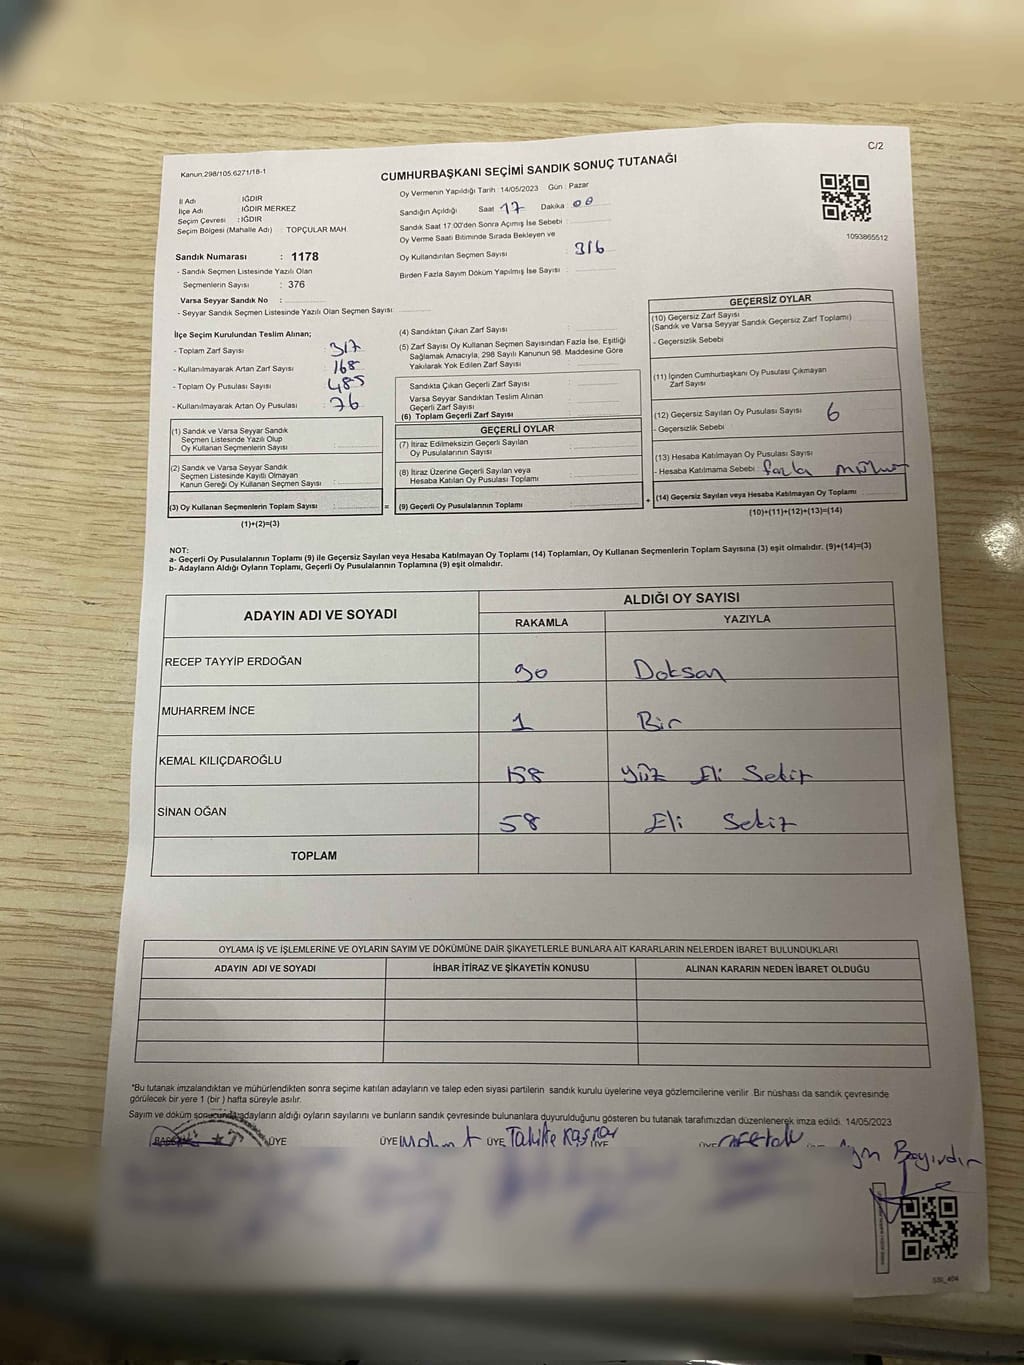 C/2
Kanun.298/105.6271/18-1
CUMHURBAŞKANI SEÇİMİ SANDIK SONUÇ TUTANAĞI
Oy Vermenin Yapıldığı Tarih : 14/05/2023 Gün : Pazar
İl Adı : IĞDIR
İlçe Adı : IĞDIR MERKEZ
Seçim Çevresi : IĞDIR
Seçim Bölgesi (Mahalle Adı) : TOPÇULAR MAH.
Sandığın Açıldığı Saat 17 Dakika 00
Sandık Saat 17:00'den Sonra Açımış İse Sebebi :
Oy Verme Saati Bitiminde Sırada Bekleyen ve
Oy Kullandırılan Seçmen Sayısı : 316
Birden Fazla Sayım Döküm Yapılmış İse Sayısı :
1093865512
Sandık Numarası : 1178
- Sandık Seçmen Listesinde Yazılı Olan
Seçmenlerin Sayısı : 376
Varsa Seyyar Sandık No :
- Seyyar Sandık Seçmen Listesinde Yazılı Olan Seçmen Sayısı:
İlçe Seçim Kurulundan Teslim Alınan;
- Toplam Zarf Sayısı : 317
- Kullanılmayarak Artan Zarf Sayısı : 168
- Toplam Oy Pusulası Sayısı : 485
- Kullanılmayarak Artan Oy Pusulası : 76
(1) Sandık ve Varsa Seyyar Sandık
Seçmen Listesinde Yazılı Olup
Oy Kullanan Seçmenlerin Sayısı :
(2) Sandık ve Varsa Seyyar Sandık
Seçmen Listesinde Kayıtlı Olmayan
Kanun Gereği Oy Kullanan Seçmen Sayısı :
(3) Oy Kullanan Seçmenlerin Toplam Sayısı :
(1)+(2)=(3)
(4) Sandıktan Çıkan Zarf Sayısı :
(5) Zarf Sayısı Oy Kullanan Seçmen Sayısından Fazla İse, Eşitliği
Sağlamak Amacıyla, 298 Sayılı Kanunun 98. Maddesine Göre
Yakılarak Yok Edilen Zarf Sayısı :
Sandıkta Çıkan Geçerli Zarf Sayısı :
Varsa Seyyar Sandıktan Teslim Alınan
Geçerli Zarf Sayısı :
(6) Toplam Geçerli Zarf Sayısı :
GEÇERLİ OYLAR
(7) İtiraz Edilmeksizin Geçerli Sayılan
Oy Pusulalarının Sayısı :
(8) İtiraz Üzerine Geçerli Sayılan veya
Hesaba Katılan Oy Pusulası Toplamı :
= (9) Geçerli Oy Pusulalarının Toplamı :
GEÇERSİZ OYLAR
(10) Geçersiz Zarf Sayısı
(Sandık ve Varsa Seyyar Sandık Geçersiz Zarf Toplamı)
- Geçersizlik Sebebi
(11) İçinden Cumhurbaşkanı Oy Pusulası Çıkmayan
Zarf Sayısı
(12) Geçersiz Sayılan Oy Pusulası Sayısı 6
- Geçersizlik Sebebi
(13) Hesaba Katılmayan Oy Pusulası Sayısı
- Hesaba Katılmama Sebebi fazla mühür
+ (14) Geçersiz Sayılan veya Hesaba Katılmayan Oy Toplamı
(10)+(11)+(12)+(13)=(14)
NOT:
a- Geçerli Oy Pusulalarının Toplamı (9) ile Geçersiz Sayılan veya Hesaba Katılmayan Oy Toplamı (14) Toplamları, Oy Kullanan Seçmenlerin Toplam Sayısına (3) eşit olmalıdır. (9)+(14)=(3)
b- Adayların Aldığı Oyların Toplamı, Geçerli Oy Pusulalarının Toplamına (9) eşit olmalıdır.
ADAYIN ADI VE SOYADI
ALDIĞI OY SAYISI
RAKAMLA YAZIYLA
RECEP TAYYİP ERDOĞAN 90 Doksan
MUHARREM İNCE 1 Bir
KEMAL KILIÇDAROĞLU 158 Yüz Eli Sekiz
SİNAN OĞAN 58 Eli Sekiz
TOPLAM
OYLAMA İŞ VE İŞLEMLERİNE VE OYLARIN SAYIM VE DÖKÜMÜNE DAİR ŞİKAYETLERLE BUNLARA AİT KARARLARIN NELERDEN İBARET BULUNDUKLARI
ADAYIN ADI VE SOYADI İHBAR İTİRAZ VE ŞİKAYETİN KONUSU ALINAN KARARIN NEDEN İBARET OLDUĞU
*Bu tutanak imzalandıktan ve mühürlendikten sonra seçime katılan adayların ve talep eden siyasi partilerin sandık kurulu üyelerine veya gözlemcilerine verilir. Bir nüshası da sandık çevresinde
görülecek bir yere 1 (bir ) hafta süreyle asılır.
Sayım ve döküm sonucunda adayların aldığı oyların sayılarını ve bunların sandık çevresinde bulunanlara duyurulduğunu gösteren bu tutanak tarafımızdan düzenlenerek imza edildi. 14/05/2023
BAŞKAN ÜYE ÜYE ÜYE ÜYE ÜYE
SSI_404